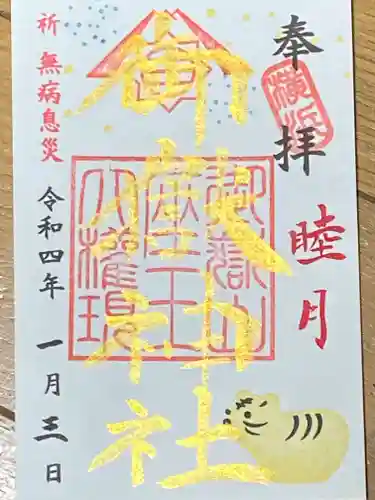 奉拝
横浜
睦月
御嶽神社
御嶽山
座王
大權現
祈 無病息災
令和四年 一月三日